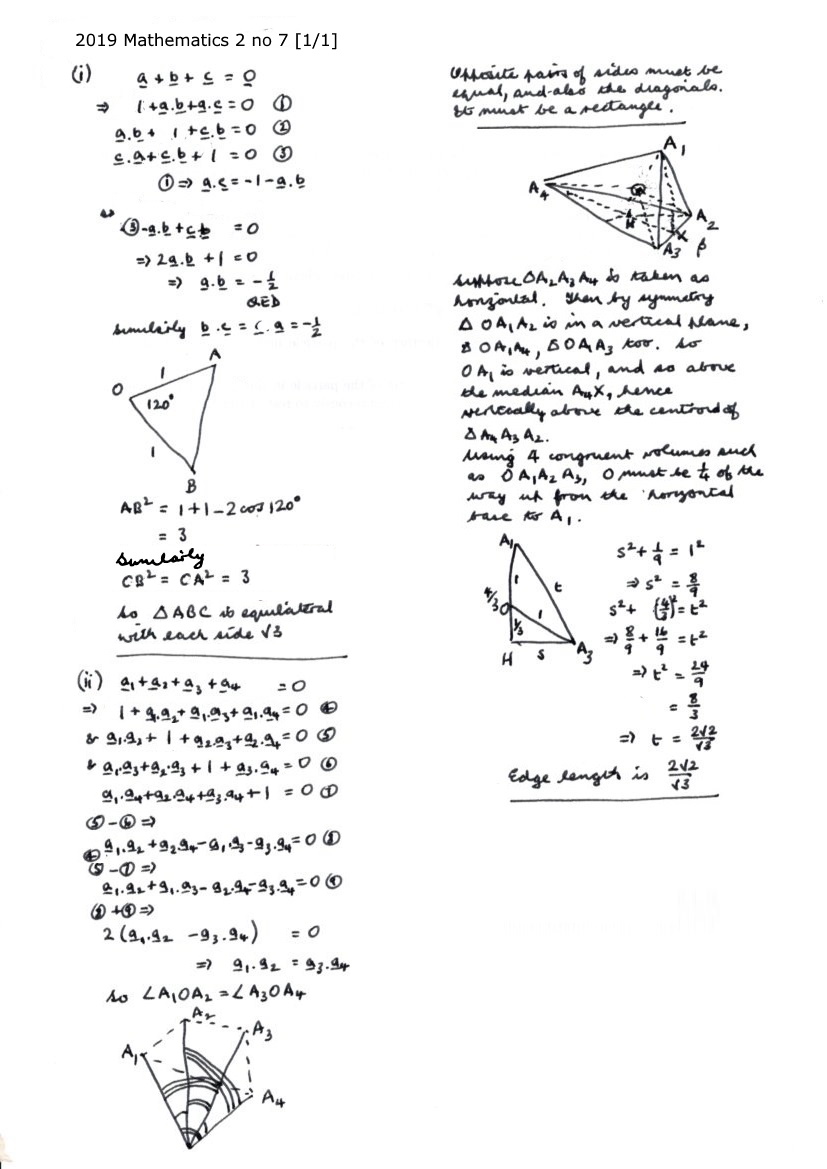 2019 Mathematics 2 no 7 [1/1]
(i) a + b + c = 0
⇒ 1 + a.b + a.c = 0 ①
a.b + 1 + c.b = 0 ②
c.a + c.b + 1 = 0 ③
① ⇒ a.c = -1 - a.b
③ -a.b + c.b = 0
⇒ 2a.b + 1 = 0
⇒ a.b = -1/2
QED
Similarly b.c = c.a = -1/2
A
1
O
120°
1
B
AB² = 1+1-2 cos 120°
= 3
Similarly
CB² = CA² = 3
So △ABC is equilateral
with each side √3
(ii) a₁+a₂+a₃+a₄ = 0
⇒ 1 + a₁.a₂ + a₁.a₃ + a₁.a₄ = 0 ④
& a₁.a₂ + 1 + a₂.a₃ + a₂.a₄ = 0 ⑤
& a₁.a₃ + a₂.a₃ + 1 + a₃.a₄ = 0 ⑥
a₁.a₄ + a₂.a₄ + a₃.a₄ + 1 = 0 ⑦
⑤ - ⑥ ⇒
a₁.a₂ + a₂.a₄ - a₁.a₃ - a₃.a₄ = 0 ⑧
④ - ⑦ ⇒
a₁.a₂ + a₁.a₃ - a₂.a₄ - a₃.a₄ = 0 ⑨
⑧ + ⑨ ⇒
2(a₁.a₂ - a₃.a₄) = 0
⇒ a₁.a₂ = a₃.a₄
So ∠A₁OA₂ = ∠A₃OA₄
A₂
A₃
A₁
A₄
Opposite pairs of sides must be
equal, and also the diagonals.
It must be a rectangle.
A₁
A₄
O
A₂
H
X
A₃
Suppose △A₂A₃A₄ is taken as
horizontal. Then by symmetry
△OA₁A₂ is in a vertical plane,
△OA₁A₄, △OA₁A₃ too. So
OA₁ is vertical, and so above
the median A₄X, hence
vertically above the centroid of
△A₄A₃A₂.
Using 4 congruent volumes such
as OA₁A₂A₃, O must be 1/4 of the
way up from the horizontal
base to A₁.
A₁
1
t
4/3
O
1
1/3
H
s
A₃
s² + 1/9 = 1²
⇒ s² = 8/9
s² + (4/3)² = t²
⇒ 8/9 + 16/9 = t²
⇒ t² = 24/9
= 8/3
⇒ t = 2√2/√3
Edge length is 2√2/√3